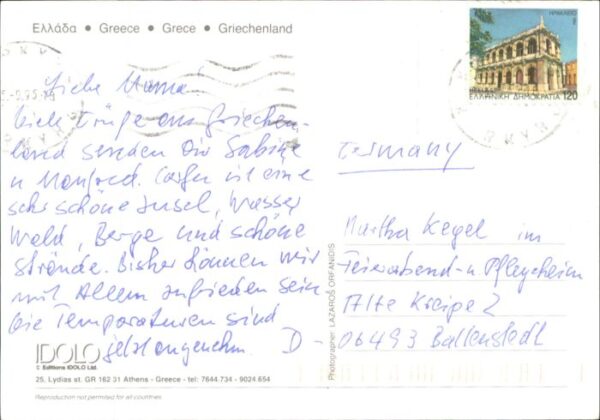 Ελλάδα • Greece • Grece • Griechenland
ΗΡΑΚΛΕΙΟ
ΕΛΛΗΝΙΚΗ ΔΗΜΟΚΡΑΤΙΑ 120
Liebe Mama!
Viele Grüße aus Griechen-
land senden Dir Sabine
u Manfred. ist eine
sehr schöne Insel, Wasser
Wald, Berge und schöne
Strände. Bisher können wir
mit Allem zufrieden sein
Die Temperaturen sind
jetzt angenehm
Germany
Martha Kegel im
Feierabend- u Pflegeheim
Alte 2
D-06493 Ballenstedt
Photographer: LAZAROS ORFANIDIS
IDOLO
© Editions IDOLO Ltd.
25, Lydias st. GR 162 31 Athens - Greece - tel: 7644.734 - 9024.654
Reproduction not permited for all countries.